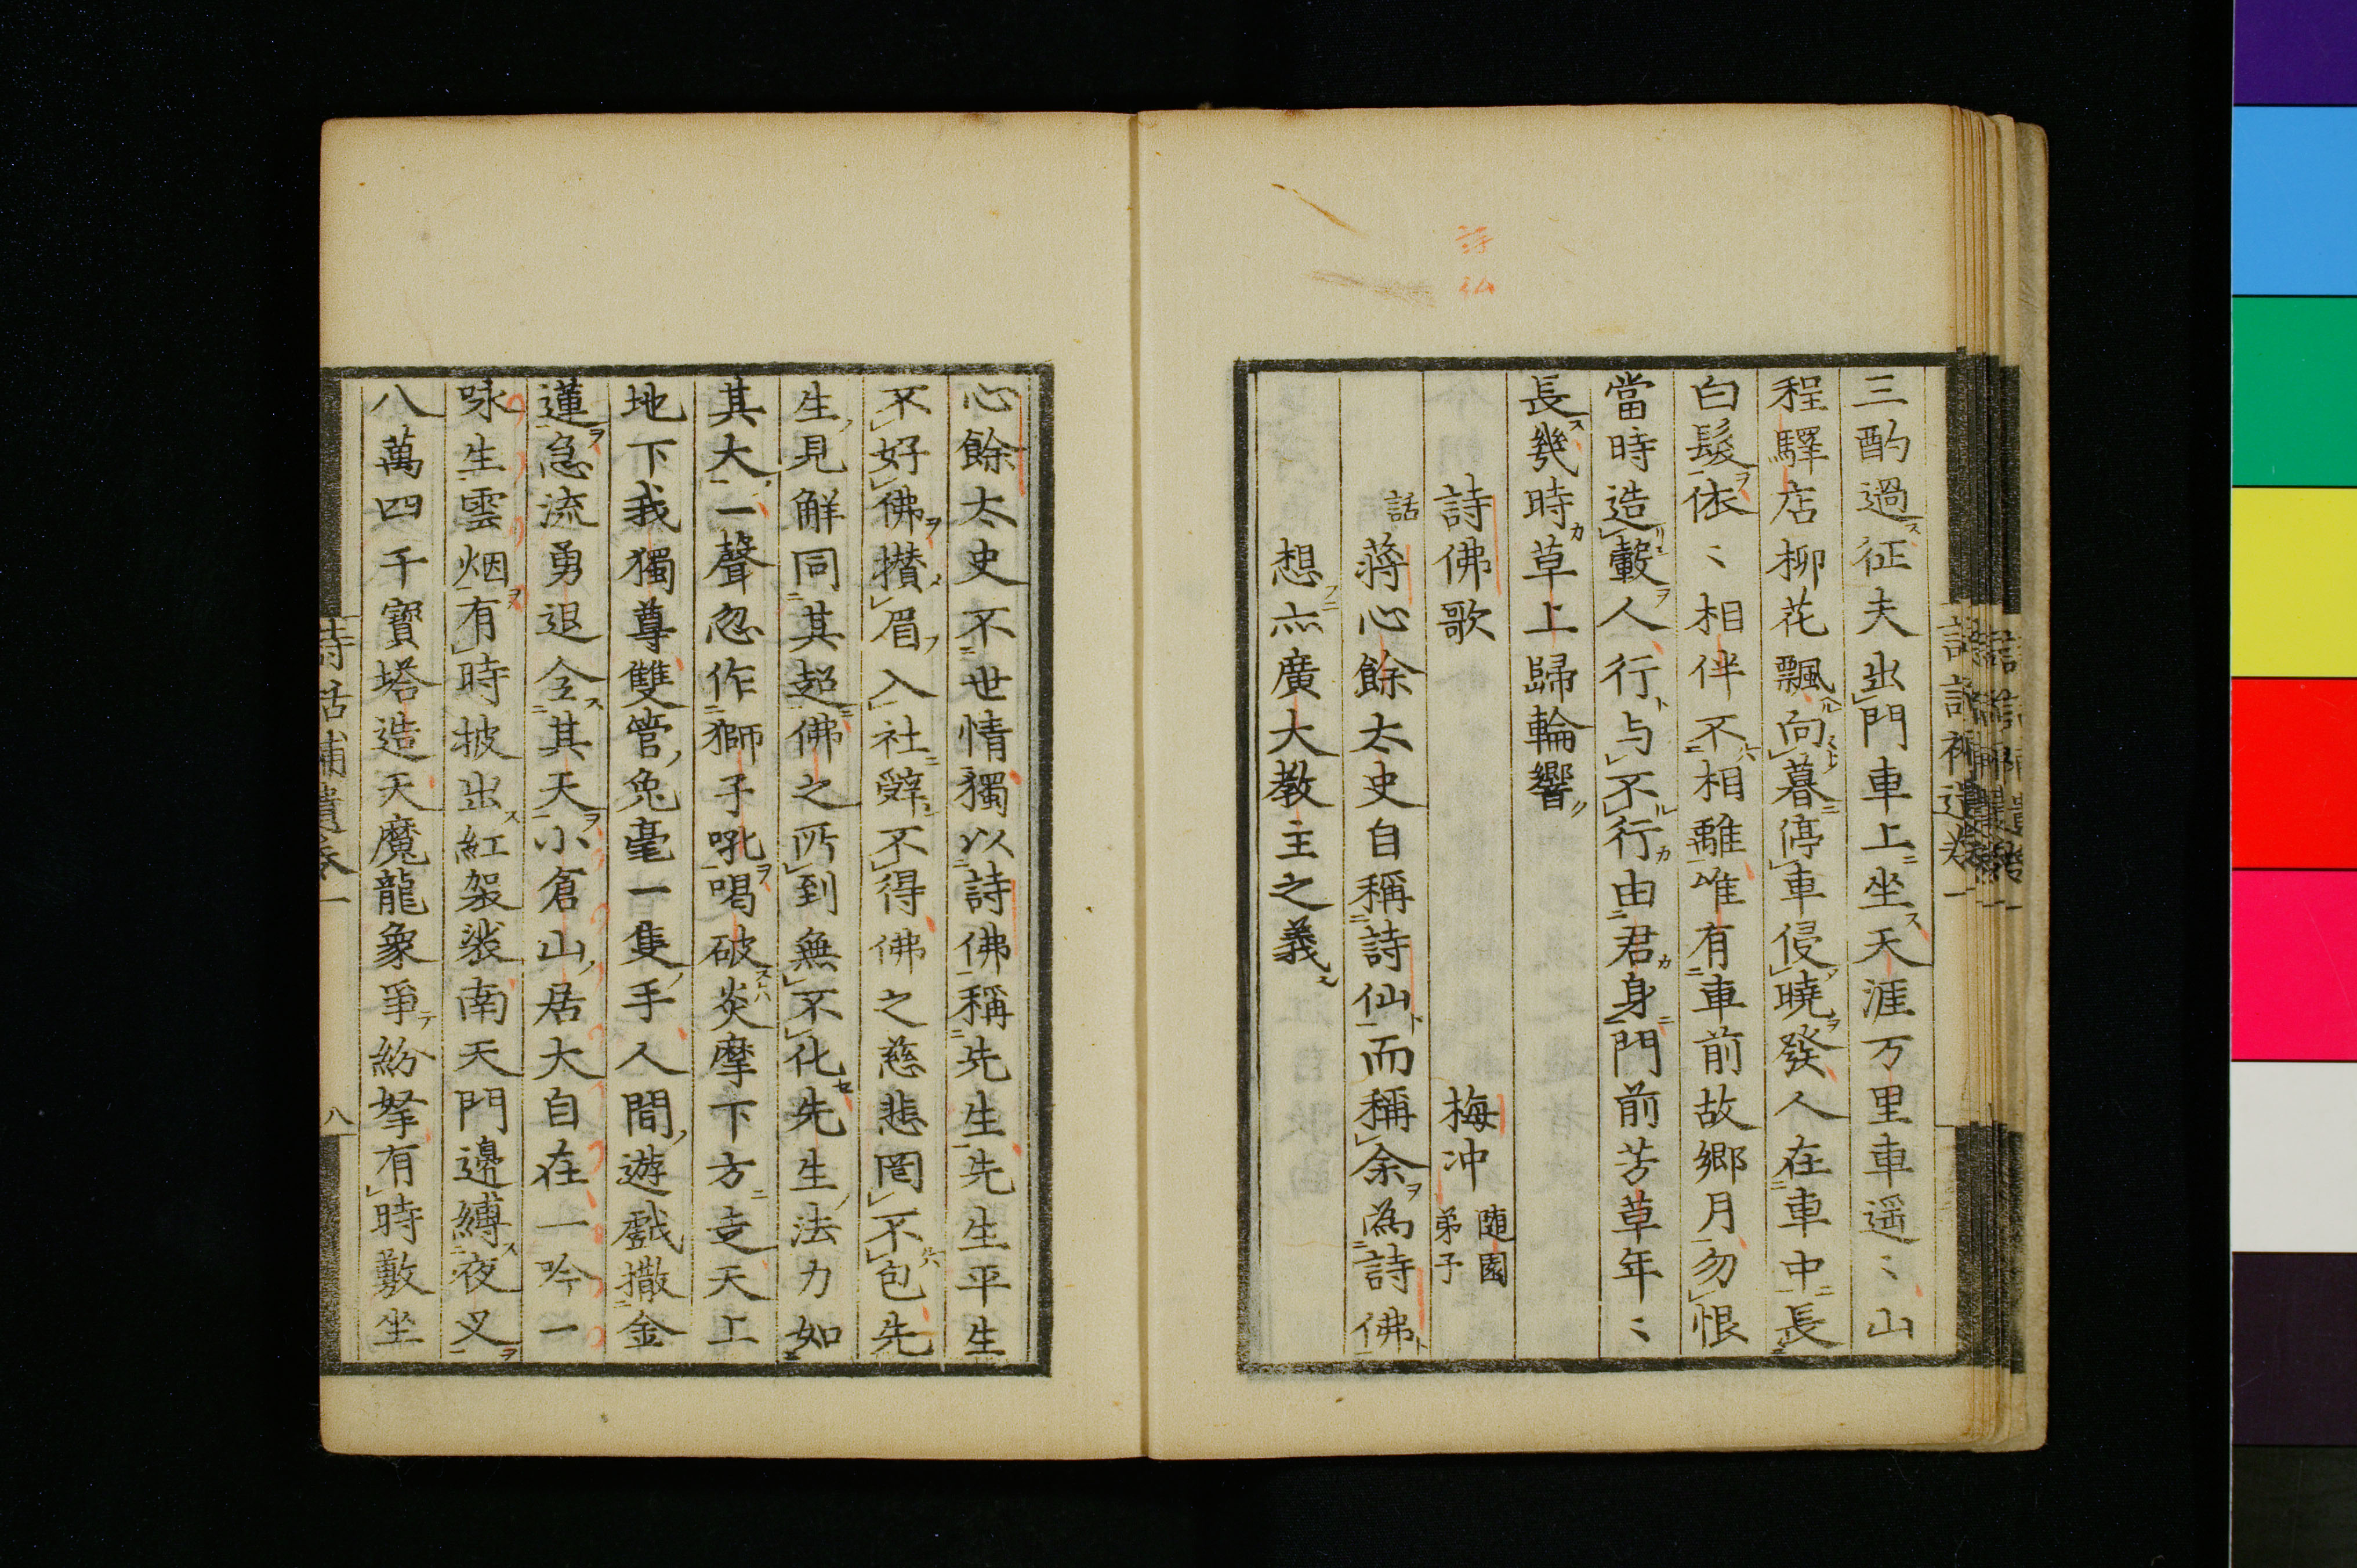 三酌過征夫出門車上坐天涯万里車遥〻山
程驛店柳花飄向暮停車侵曉發人在車中長
白髮依〻相伴不相離唯有車前故鄉月勿恨
當時造轂人行与不行由君身門前芳草年〻
長幾時草上歸輪響
詩佛歌 梅冲 随園弟子
話 蒋心餘太史自稱詩仙而稱余為詩佛
想亦廣大教主之義
詩仏
心餘太史不世情獨以詩佛稱先生先生平生
不好佛攢眉入社辭不得佛之慈悲罔不包先
生見解同其超佛之所到無不化先生法力如
其大一聲忽作獅子吼喝破炎摩下方走天上
地下我獨尊雙管兔毫一隻手人間遊戲撒金
蓮急流勇退全其天小倉山居大自在一吟一
咏生雲烟有時披出紅袈裟南天門邊縛夜叉
八萬四千寶塔造天魔龍象爭紛拏有時敷坐
詩話補遺卷一
八